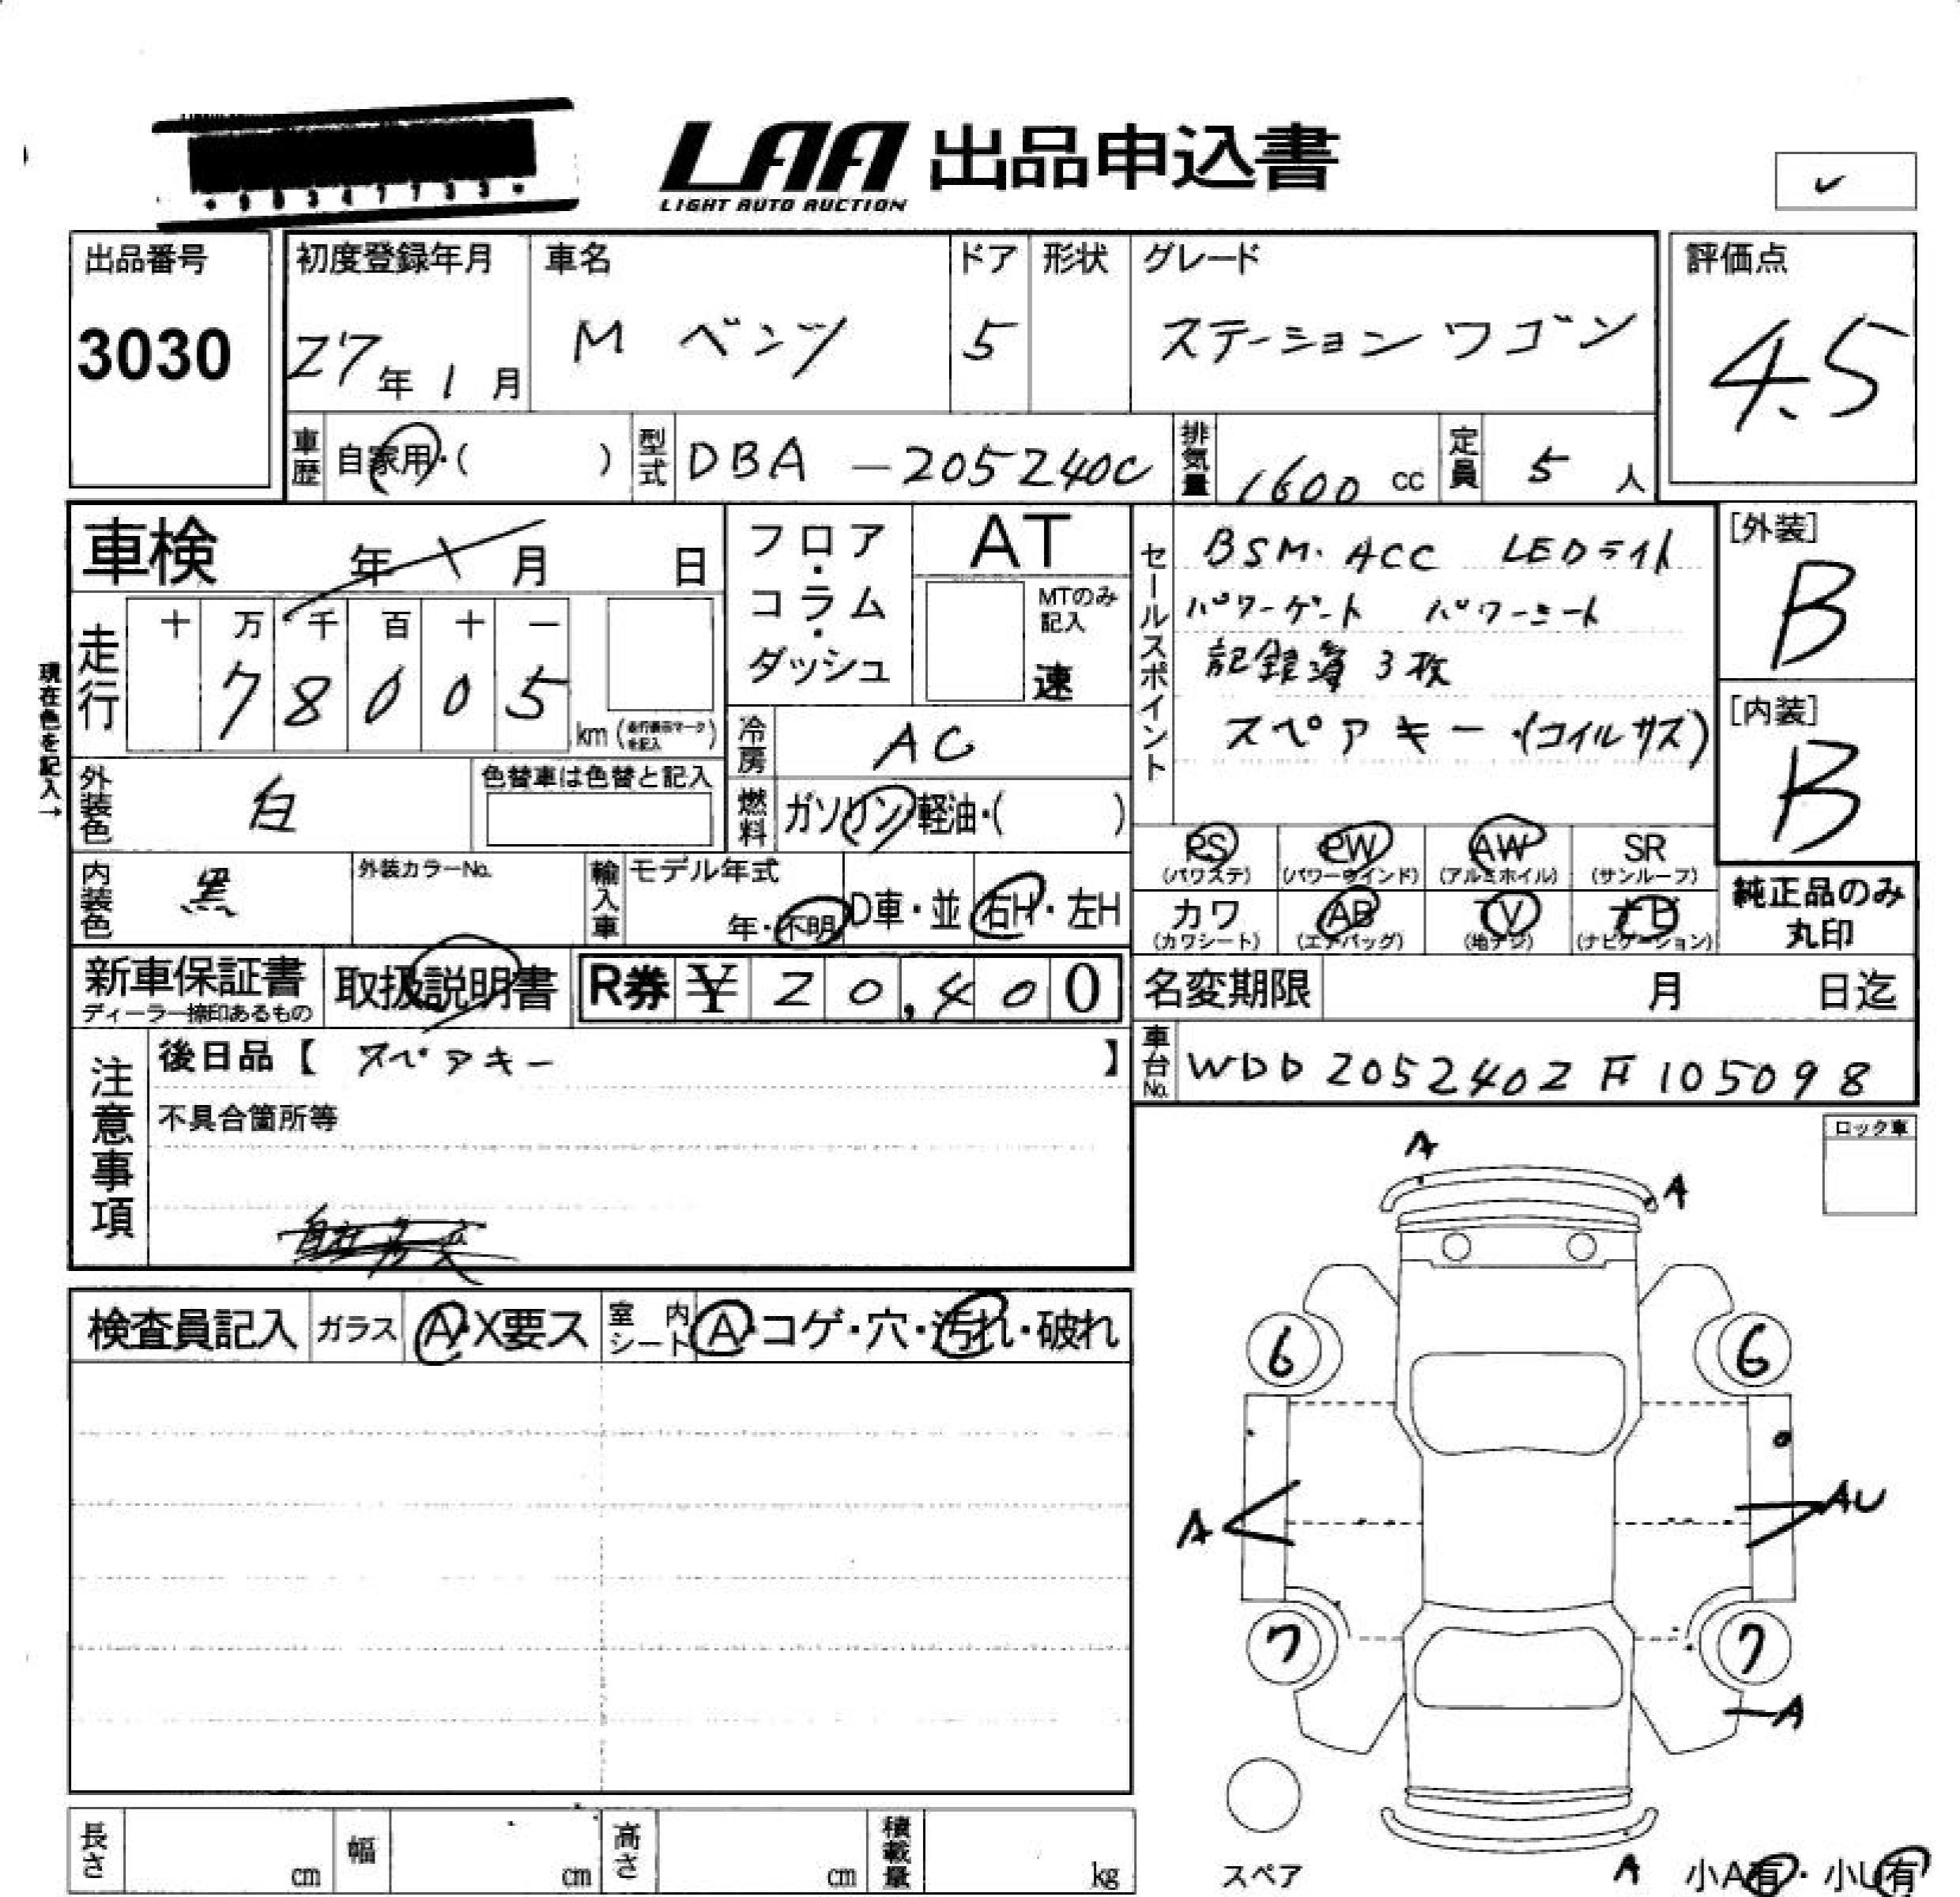 LAA 出品申込書
LIGHT AUTO AUCTION
✓
出品番号 初度登録年月 車名 ドア 形状 グレード 評価点
3030 27年 1月 M ベンツ 5 ステーションワゴン 4.5
車歴 自家用・( ) 型式 DBA-205240C 排気量 1600 cc 定員 5 人
車検 年 月 日
フロア・コラム・ダッシュ
AT
MTのみ記入
速
セールスポイント
BSM. ACC LEDライト
パワーゲート パワーシート
記録簿 3枚
スペアキー・(コイルサス)
[外装]
B
[内装]
B
現在色を記入→
走行 十 万 千 百 十 一
7 8 0 0 5 km
冷房 AC
外装色 白 色替車は色替と記入
燃料 ガソリン・軽油・( )
PS (パワステ) PW (パワーウインド) AW (アルミホイル) SR (サンルーフ)
カワ (カワシート) AB (エアバッグ) TV (地デジ) ナビ (ナビゲーション)
純正品のみ
丸印
内装色 黒 外装カラーNo. 輸入車 モデル年式 年・不明 D車・並 右H・左H
新車保証書 取扱説明書 R券 ¥ 20,400 名変期限 月 日迄
ディーラー捺印あるもの
車台No. WDD2052402F105098
注意事項
後日品【 スペアキー 】
不具合箇所等
ロック車
A
A
検査員記入 ガラス A・X要ス 室内シート A・コゲ・穴・汚れ・破れ
6 6
A AU
7 7
A
長さ cm 幅 cm 高さ cm 積載量 kg
スペア A 小A有・小U有